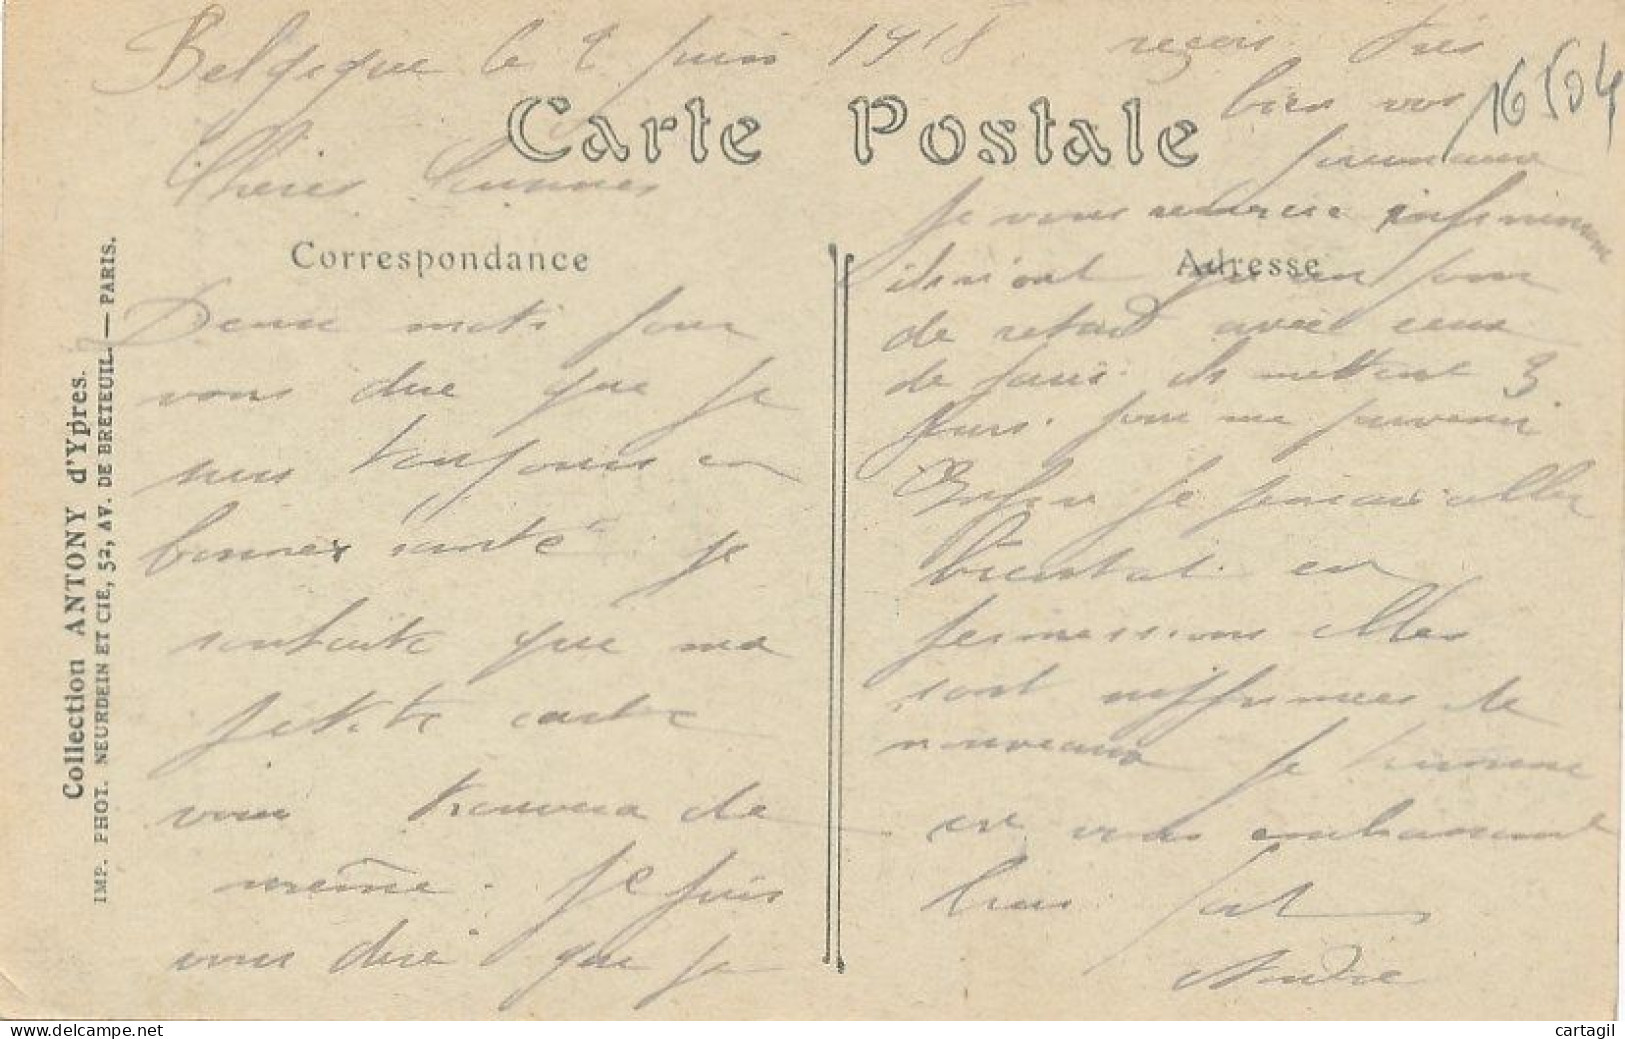 Belgique le 2 juin 1915
Chères
Carte Postale
Correspondance
Deux mots pour
vous dire que je
suis toujours en
bonnes santé je
souhaite que ma
petite carte
vous trouvera de
même. Je puis
vous dire que je
reçois très
bien vos
journaux
je vous remercie infiniment
Adresse
ils n'ont qu'un jour
de retard avec ceux
de Paris. ils mettent 3
jours. pour me parvenir
je pensais aller
bientot en
permissions elles
sont supprimées de
nouveaux je termine
en vous embrassant
bien fort
André
16504
Collection ANTONY d'Ypres.
IMP. PHOT. NEURDEIN ET CIE, 52, AV. DE BRETEUIL. — PARIS.
cartagil